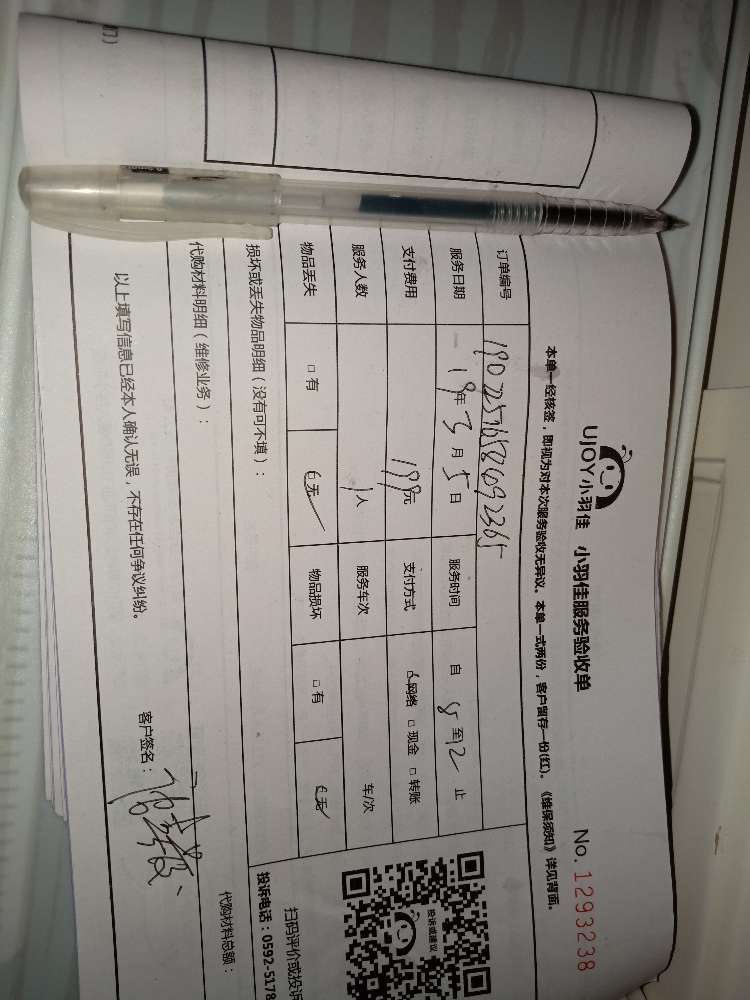 UJOY小羽佳 小羽佳服务验收单 No.1293238
本单一经核签，即视为对本次服务验收无异议。本单一式两份，客户留存一份(红)。《维保须知》详见背面。
订单编号
服务日期 19年3月5日 服务时间 自 8 至12 止
支付费用 199元 支付方式 网络 □ 现金 □ 转账
服务人数 1人 服务车次 车/次
物品丢失 □ 有 无 物品损坏 □ 有 无
损坏或丢失物品明细（没有可不填）：
代购材料明细（维修业务）： 代购材料总额：
以上填写信息已经本人确认无误，不存在任何争议纠纷。 客户签名：
投诉或建议
扫码评价或投诉
投诉电话：0592-5178